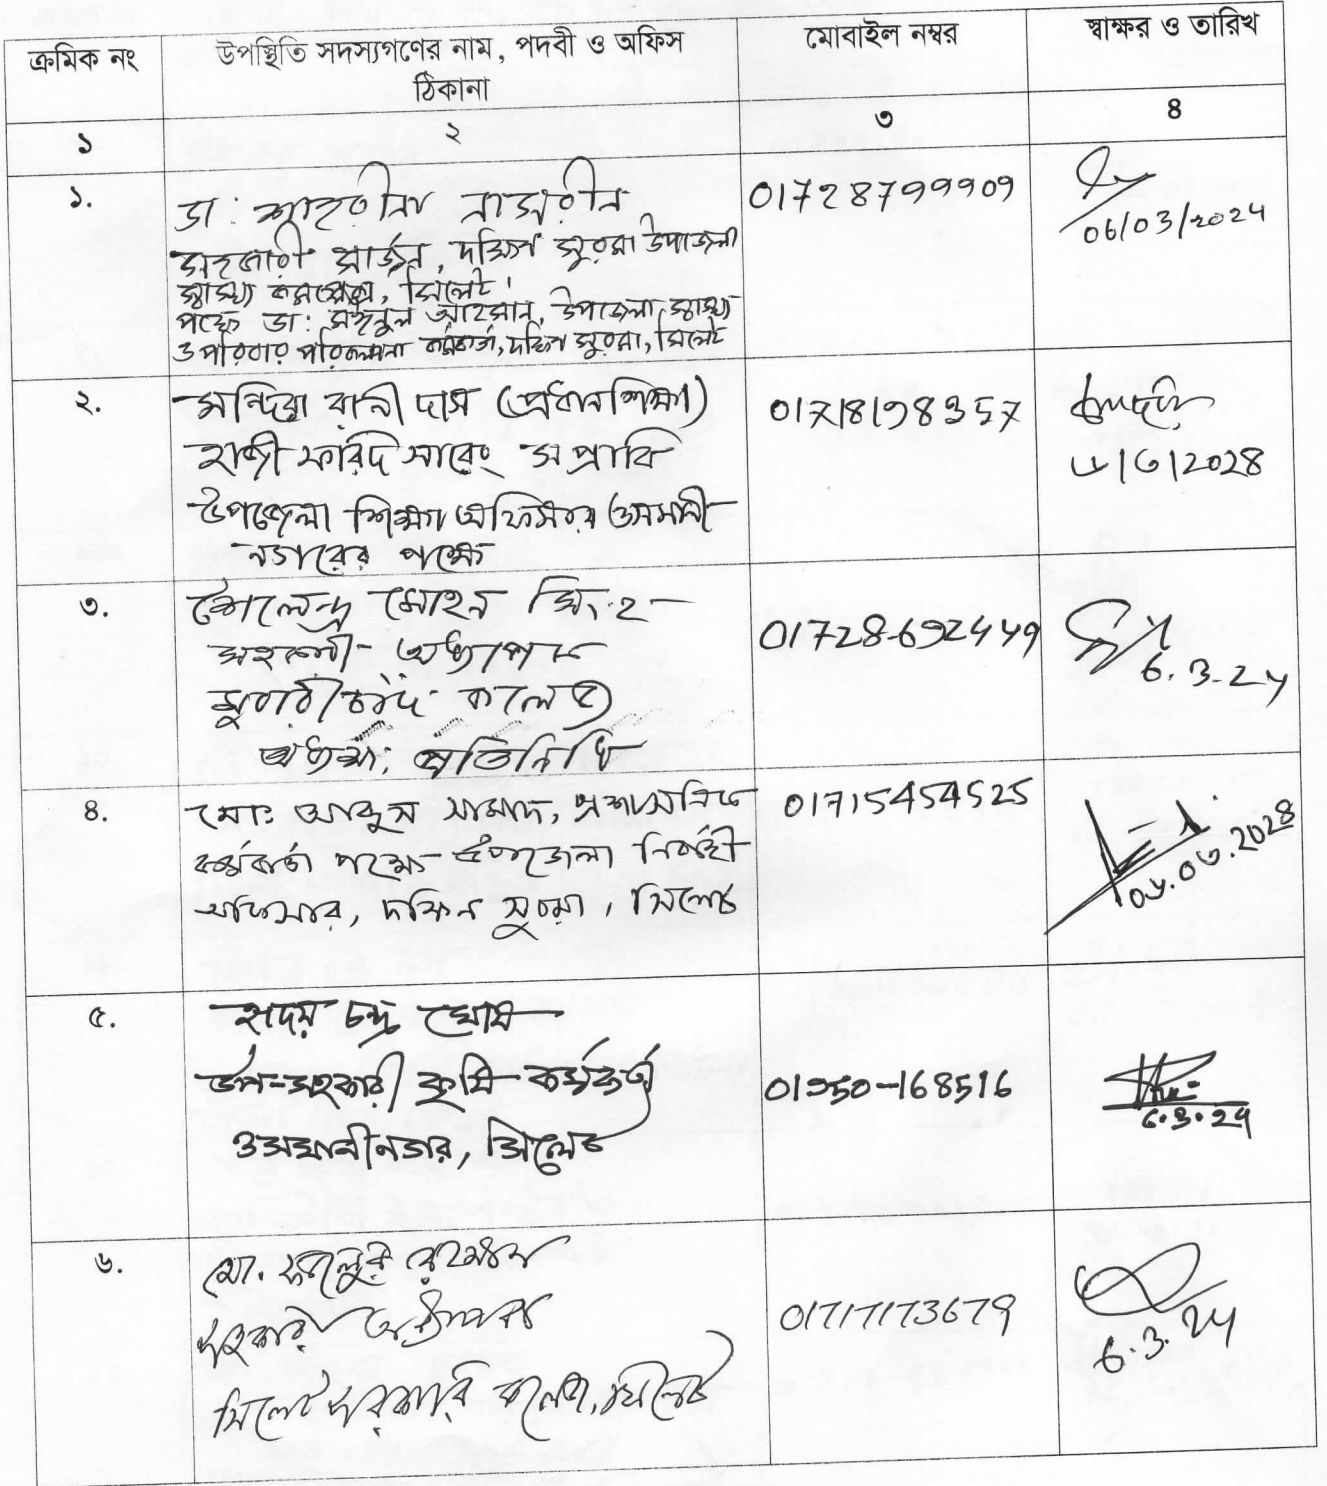 ক্রমিক নং
উপস্থিতি সদস্যগণের নাম, পদবী ও অফিস
ঠিকানা
মোবাইল নম্বর
স্বাক্ষর ও তারিখ
১
২
৩
৪
১.
ডা: শাহরীনা নাসরীন
সহকারী সার্জন, দক্ষিণ সুরমা উপজেলা
স্বাস্থ্য কমপ্লেক্স, সিলেট।
পক্ষে ডা: মঈনুল আহসান, উপজেলা স্বাস্থ্য
ও পরিবার পরিকল্পনা কর্মকর্তা, দক্ষিণ সুরমা, সিলেট
01728799909
06/03/2024
২.
মন্দিরা রানী দাস (প্রধান শিক্ষক)
হাজী ফরিদ সারেং স প্রাবি
উপজেলা শিক্ষা অফিসার ওসমানী
নগরের পক্ষে
৩.
শৈলেন্দ্র মোহন সিংহ
সহকারী অধ্যাপক
মুরারীচাঁদ কলেজ
অধ্যক্ষ: প্রতিনিধি
01728-692449
6.3.24
৪.
মো: আব্দুস সামাদ, প্রশাসনিক
কর্মকর্তা পক্ষে উপজেলা নির্বাহী
অফিসার, দক্ষিন সুরমা, সিলেট
01715454525
০৬.০৩.২০২৪
৫.
হৃদয় চন্দ্র ঘোষ
উপ-সহকারী কৃষি কর্মকর্তা
ওসমানীনগর, সিলেট
01750-168516
6.3.24
৬.
মো. ফজলুর রহমান
সহকারী অধ্যাপক
সিলেট সরকারি কলেজ, সিলেট
01717173679
6.3.24